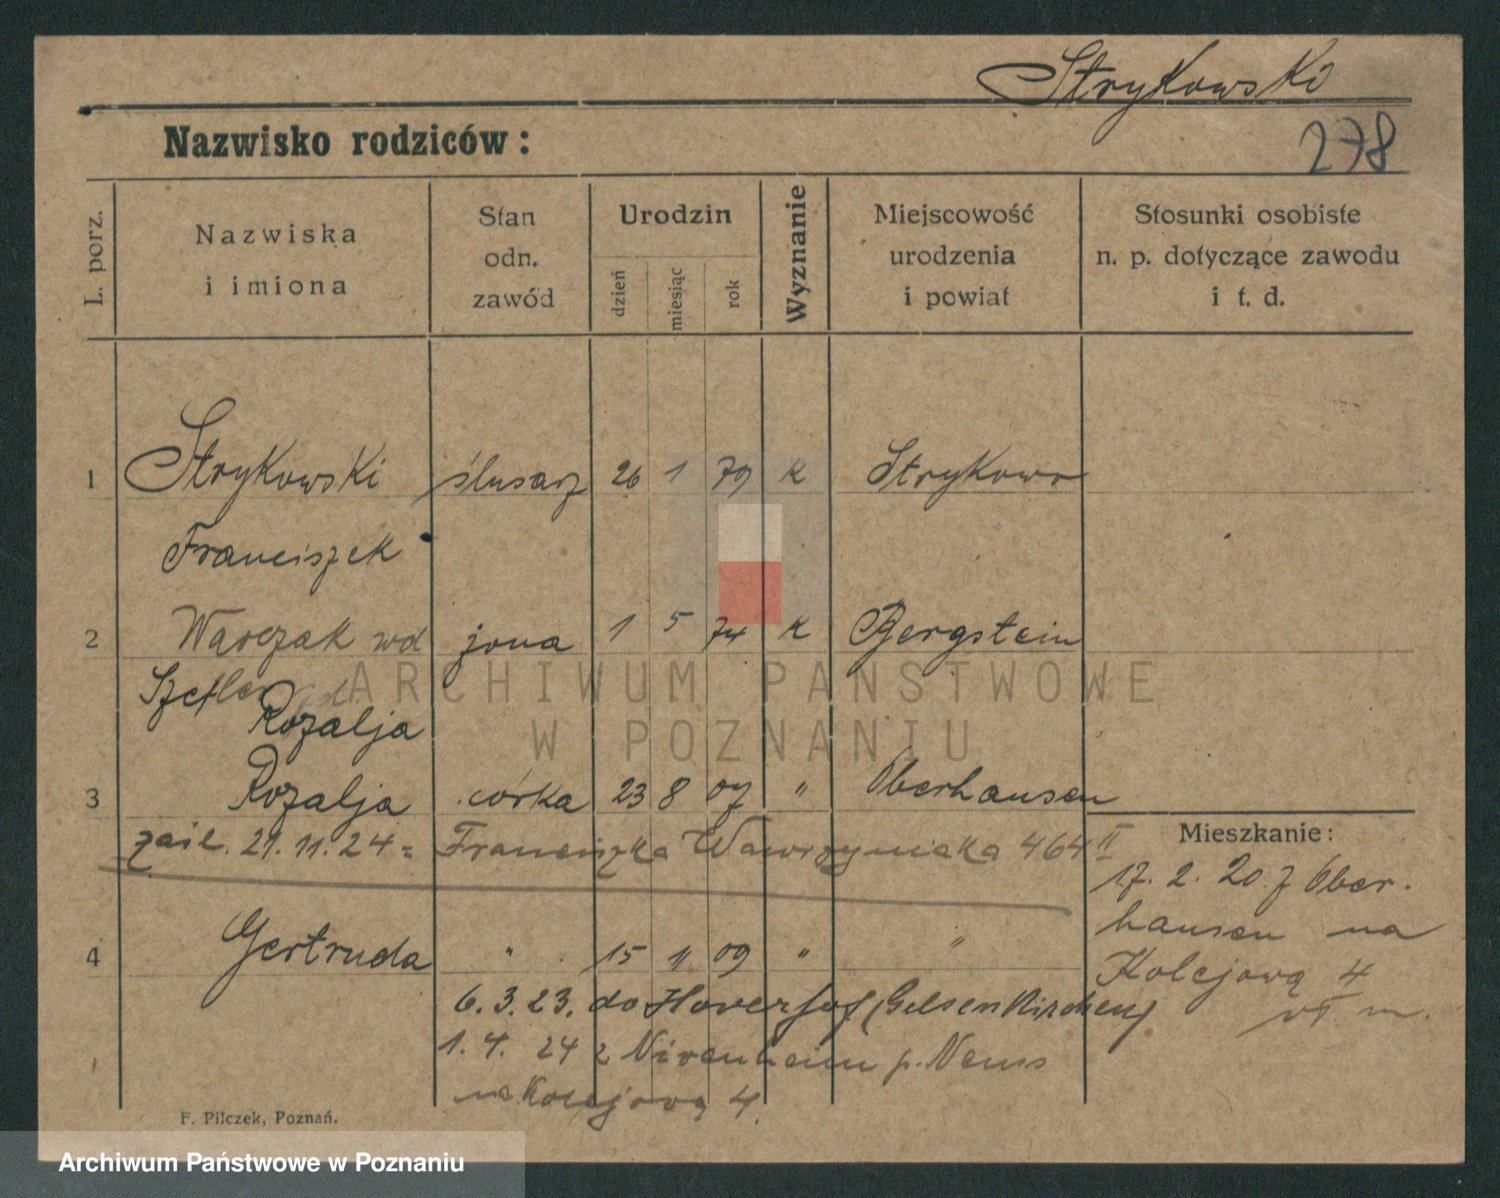 Strykowski
278
Nazwisko rodziców:
L. porz.
Nazwiska
i imiona
Stan
odn.
zawód
Urodzin
dzień
miesiąc
rok
Wyznanie
Miejscowość
urodzenia
i powiat
Stosunki osobiste
n. p. dotyczące zawodu
i t. d.
1 Strykowski ślusarz 26 1 79 K Strykowo
Franciszek
2 Warczak wd żona 1 5 74 K Bergstein
Szetler
Rozalja
ARCHIWUM PAŃSTWOWE
W POZNANIU
3 Rozalja córka 23 8 07 " Oberhausen
zaśl. 21.11.24 = Franciszka Wawrzyniaka 464 II
Mieszkanie:
17. 2. 20. z Ober-
hausen na
Kolejową 4
4 Gertruda " 15 11 09 " "
6.3.23. do (Gelsenkirchen)
1.4.24 z Nivenheim p. Neuss
na Kolejową 4.
F. Pilczek, Poznań.
Archiwum Państwowe w Poznaniu